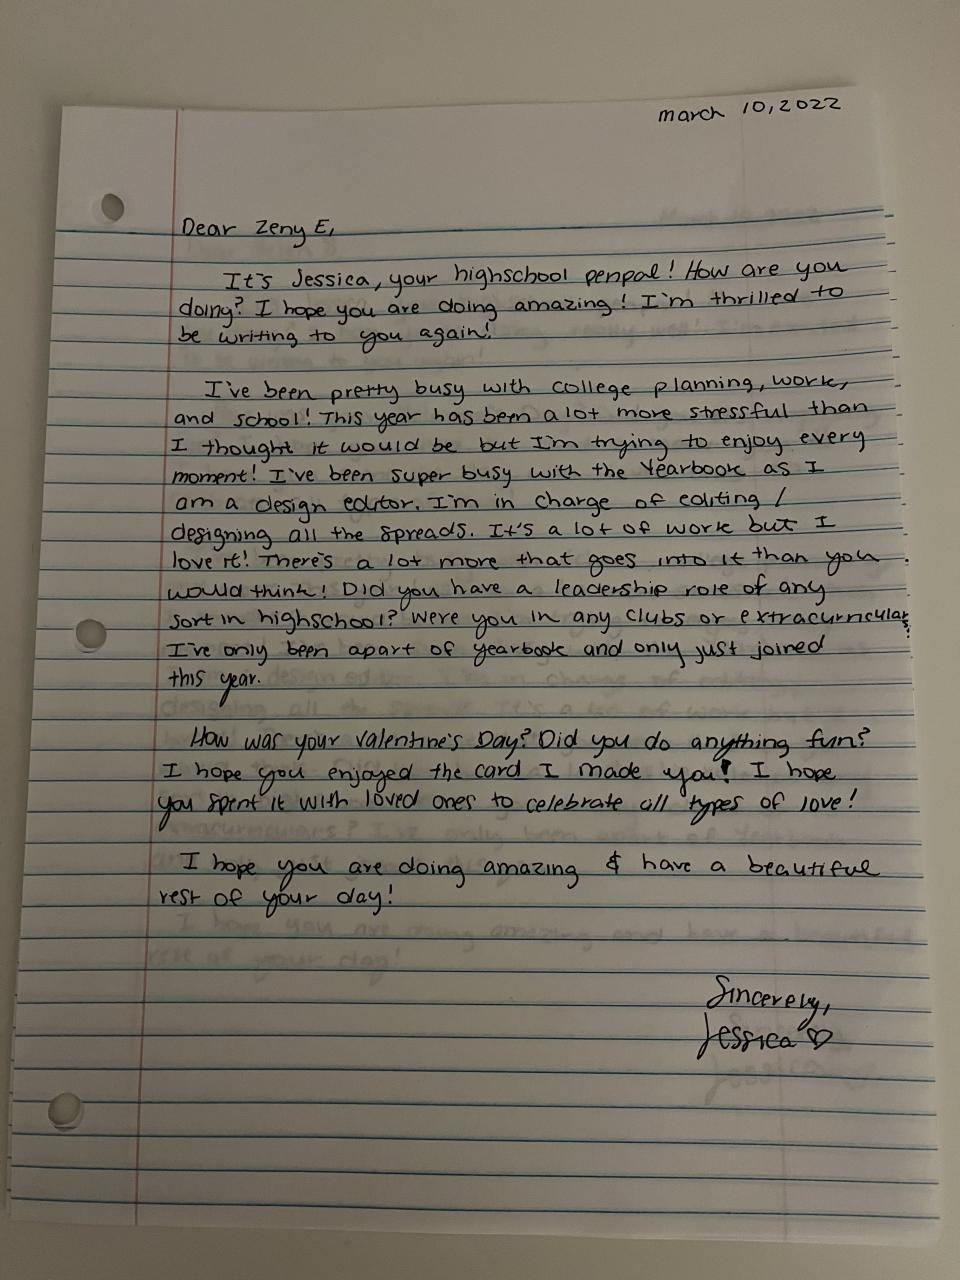 march 10, 2022
Dear Zeny E,
It's Jessica, your highschool penpal! How are you
doing? I hope you are doing amazing! I'm thrilled to
be writing to you again!
I've been pretty busy with college planning, work,
and school! This year has been a lot more stressful than
I thought it would be but I'm trying to enjoy every
moment! I've been super busy with the Yearbook as I
am a design editor. I'm in charge of editing /
designing all the spreads. It's a lot of work but I
love it! There's a lot more that goes into it than you
would think! Did you have a leadership role of any
sort in highschool? Were you in any clubs or extracurricular?
I've only been apart of yearbook and only just joined
this year.
How was your Valentine's Day? Did you do anything fun?
I hope you enjoyed the card I made you! I hope
you spent it with loved ones to celebrate all types of love!
I hope you are doing amazing & have a beautiful
rest of your day!
Sincerely,
Jessica ♡